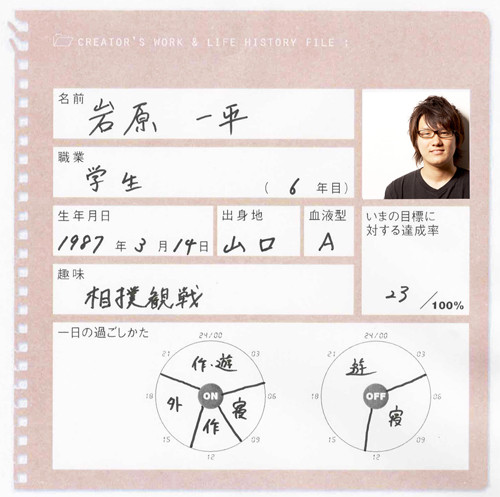 CREATOR'S WORK & LIFE HISTORY FILE :
名前
岩原 一平
職業
学生 ( 6 年目)
生年月日
1987 年 3 月 14 日
出身地
山口
血液型
A
いまの目標に
対する達成率
23 /100%
趣味
相撲観戦
一日の過ごしかた
24/00
21 03
作・遊
18 外 ON 寝 06
作
15 09
12
24/00
21 03
遊
18 OFF 06
寝
15 09
12